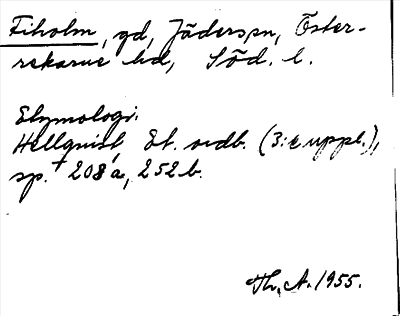 Fiholm, gd, Jäderspn, Öster-
rekarne hd, Söd. l.
Etymologi.
Hellquist, Et. ordb. (3:e uppl.),
sp. 208 a, 252 b.
Th. A. 1955.